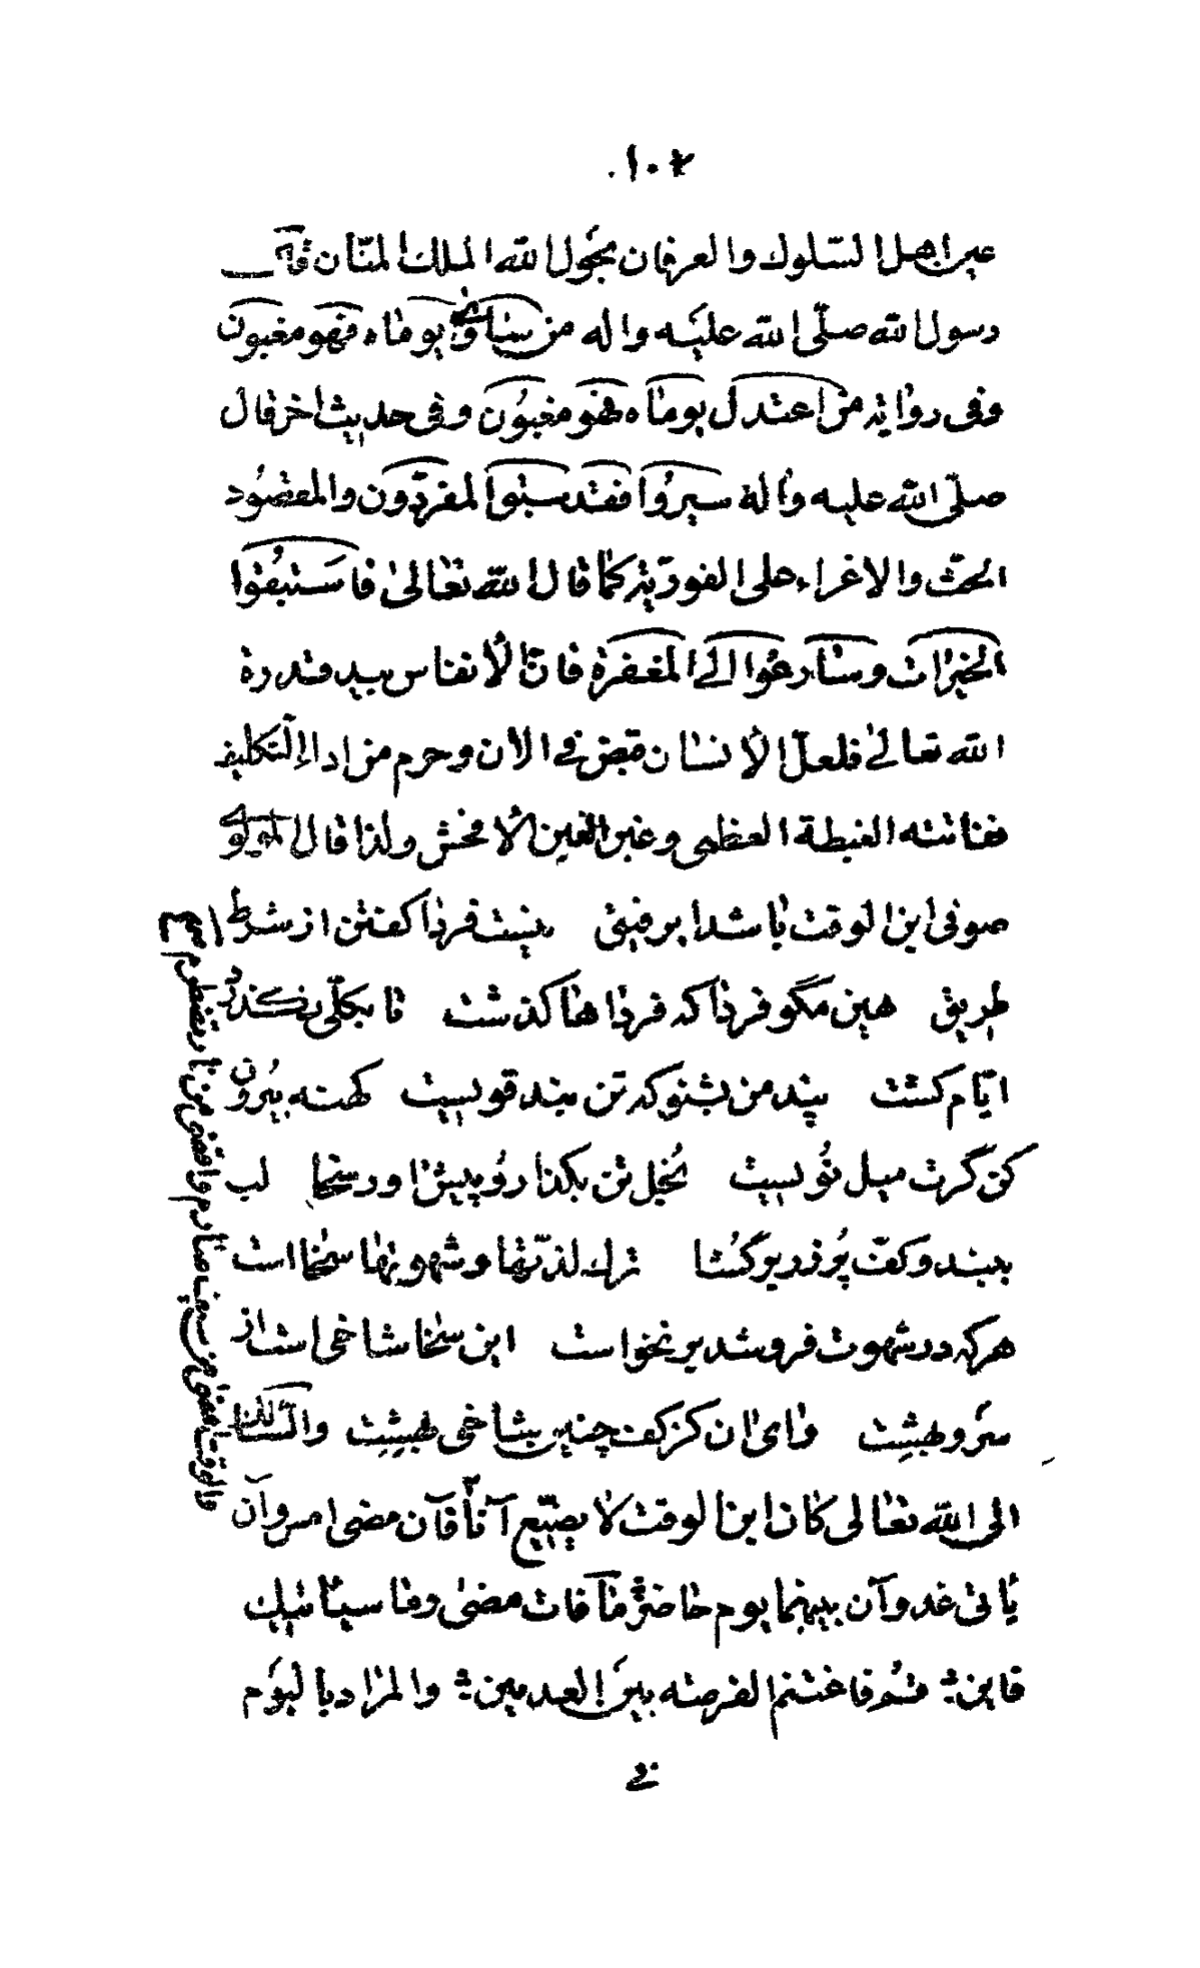 ۱۰۲
عبر اهل السّلوك والعرفان بحول الله الملك المنّان قال
رسول الله صلّى الله عليه واله من يوماه فهو مغبون
وفى رواية من اعتدل يوماه فهو مغبون وفى حديث اخر قال
صلّى الله عليه واله سيروا فقد سبقوا المفرّدون والمقصود
الحثّ والاغراء على الفوريّة كما قال الله تعالى فاستبقوا
الخيرات وسارعوا الى المغفرة فانّ الأنفاس بيد قدرة
الله تعالى فلعلّ الإنسان قبض فى الان وحرم من اداء التكليف
ففاتته الغبطة العظمى وغبن الغبن الأفحش ولذا قال المولوى
صوفى ابن الوقت باشد اى رفيق نيست فردا گفتن از شرط
طريق هين مگو فردا كه فرداها گذشت تا بكلّى نگذرد
ايّام كشت پند من بشنو كه تن بند قويست كهنه بيرون
كن گرت ميل نويست بخل تن بگذار و پيش اور سخا لب
ببند و كفّ پر زر بر گشا ترك لذّتها و شهوتها سخا است
هركه در شهوت فرو شد بر نخواست اين سخا شاخى است از
سرو بهشت واى ان كز كف چنين شاخى بهشت والسّالك
الى الله تعالى كان ابن الوقت لا يضيّع آناً فآن مضى امس وآن
يأتى غد وآن بينهما يوم حاضر ما فات مضى وما سيأتيك
فاين ؛ قم فاغتنم الفرصة بين العدمين ؛ والمراد باليوم
فى